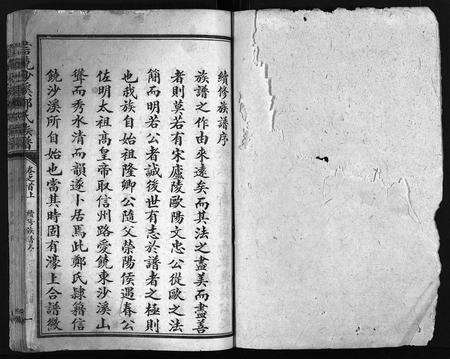 續修族譜序
族譜之作由來遠矣而其法之盡美而盡善
者則莫若有宋廬陵歐陽文忠公從歐之法
簡而明若公者誠後世有志於譜者之極則
也我族自始祖隆卿公隨父榮陽侯遇春公
佐明太祖高皇帝取信州路愛饒東沙溪山
聳而秀水清而韻遂卜居焉此鄭氏肆籍信
饒沙溪所自始也當其時固有濠上合譜徵
沙溪鄭氏族譜
卷之首上
續修族譜序
一